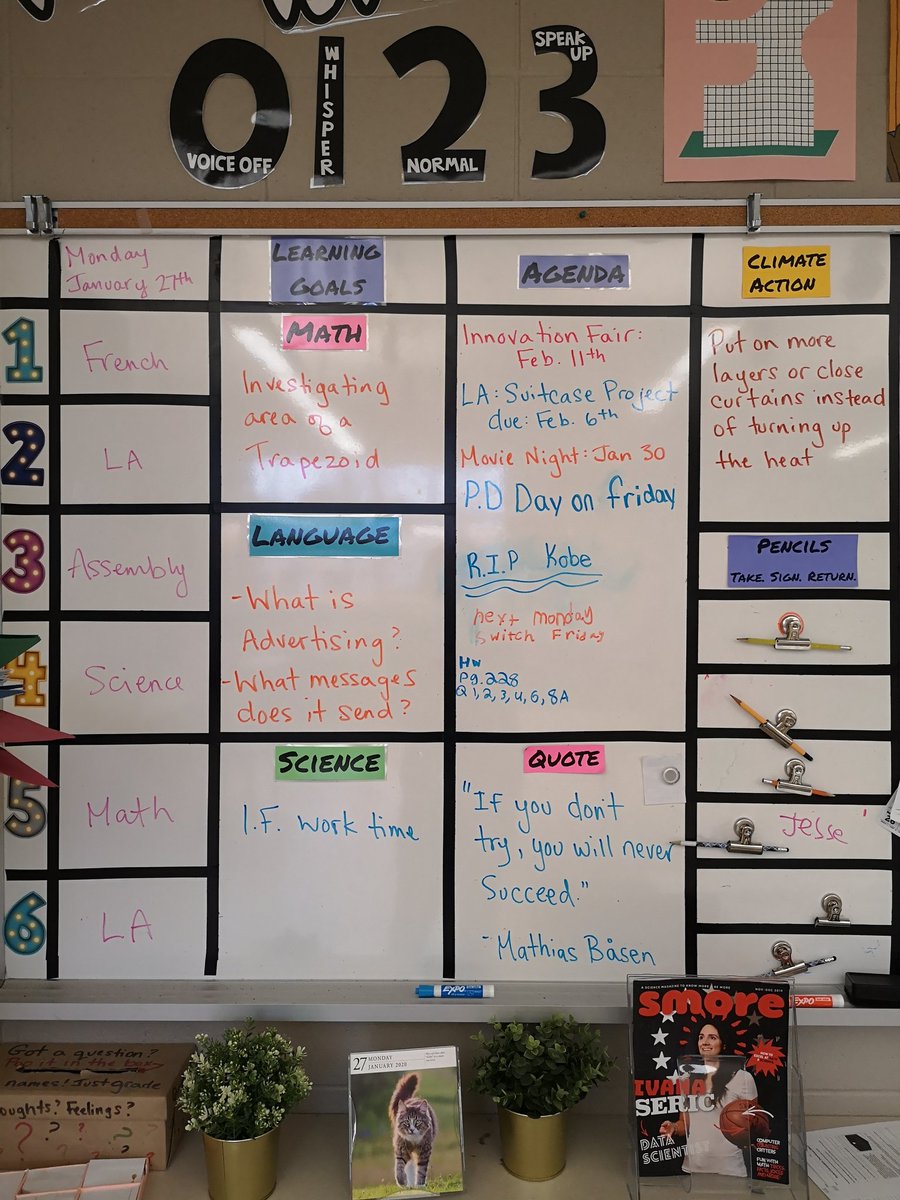 0 1 2 3
VOICE OFF
WHISPER
NORMAL
SPEAK UP
Monday
January 27th
LEARNING
GOALS
AGENDA
CLIMATE
ACTION
1
French
2
LA
3
Assembly
4
Science
5
Math
6
LA
MATH
Investigating
area of a
Trapezoid
LANGUAGE
-What is
Advertising?
-What messages
does it send?
SCIENCE
I.F. work time
Innovation Fair:
Feb. 11th
LA: Suitcase Project
due: Feb. 6th
Movie Night: Jan 30
P.D Day on friday
R.I.P Kobe
next monday
switch Friday
HW
Pg. 228
Q 1, 2, 3, 4, 6, 8A
QUOTE
"If you don't
try, you will never
Succeed."
- Mathias Båsen
Put on more
layers or close
curtains instead
of turning up
the heat
PENCILS
TAKE. SIGN. RETURN.
Jesse
EXPO
EXPO
Got a question?
Put it in the box
names! Just grade
oughts? Feelings?
? ? ?
27 MONDAY
JANUARY 2020
A SCIENCE MAGAZINE TO KNOW MORE & BE MORE
NOV-DEC 2019
smore
IVANA
SERIC
DATA
SCIENTIST
COMPUTER
CRITTERS
FUN WITH
MATH